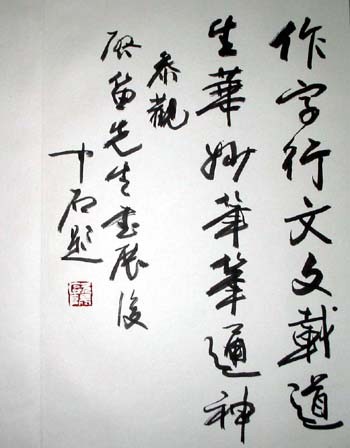 作字行文文載道
生華妙筆筆通神
恭觀
啟笛先生書展後
十石題